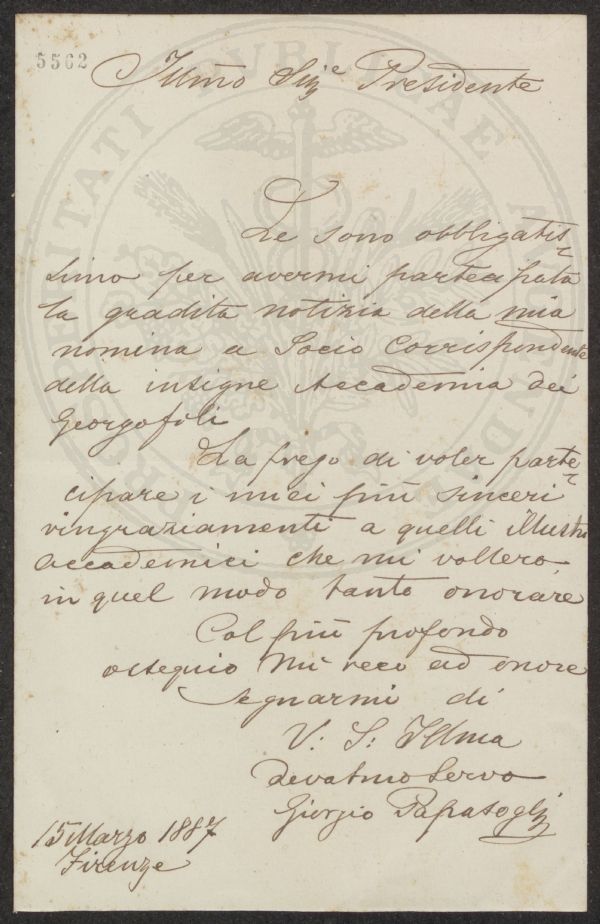 5562
Illmo Sige Presidente
Le sono obbligatis=
simo per avermi partecipata
la gradita notizia della mia
nomina a Socio Corrispondente
della insigne Accademia dei
Georgofili
La prego di voler parte=
cipare i miei più sinceri
ringraziamenti a quelli illustri
accademici che mi vollero
in quel modo tanto onorare
Col più profondo
ossequio mi reco ad onore
segnarmi di
V: S: Illma
Devotmo Servo
Giorgio Papasogli
15 Marzo 1887
Firenze
PROSPERITATI PUBLICAE AUGENDAE